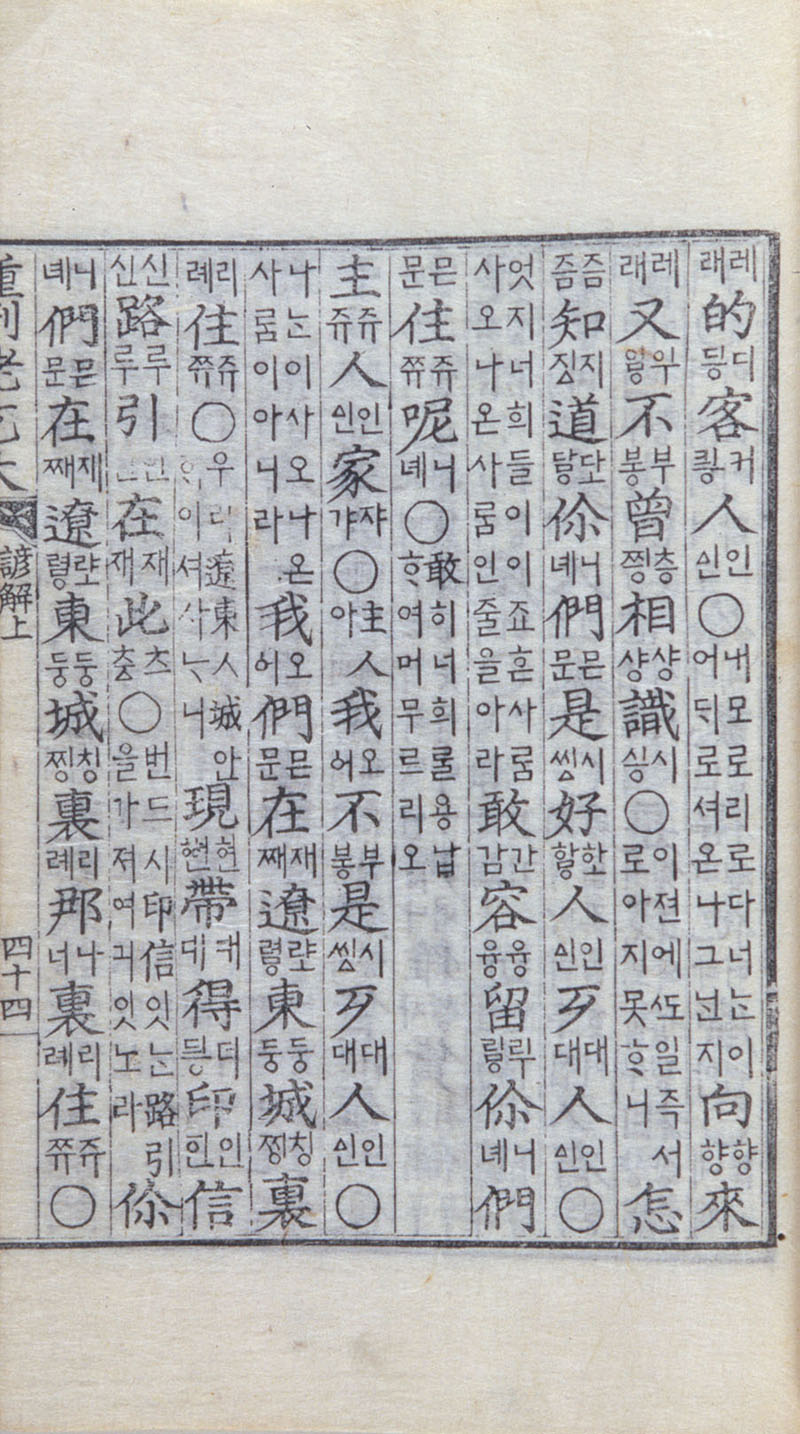 래레的딍디客킁커人신인○내모로리로다너ᄂᆞᆫ이어듸로셔온나그넌지向향향來
래레又읳우不붕부曾찡층相샹샹識싱시○이젼에ᄯᅩ일즉서로아지못ᄒᆞ니怎
즘즘知징지道닿단你녜니們문믄是씽시好핳한人신인歹대대人신인○
엇지너희들이이죠흔사룸사오나온사룸인줄을아라敢감간容융융留릴루你녜니們
문믄住쮸쥬呢녜니○敢히너희ᄅᆞᆯ용납ᄒᆞ여머무르리오
主쥬쥬人신인家갸쟈○主人아我어오不붕부是씽시歹대대人신인○
나ᄂᆞᆫ이사오나온사룸이아니라我어오們문믄在째재遼령랸東둥둥城찡칭裏
례리住쮸쥬○우리遼東ㅅ城안이셔사ᄂᆞ니現현현帶대대得등더印인인信
신신路루루引인인在째재此충츠○번드시印信잇ᄂᆞᆫ路引을가져여긔잇노라你
녜니們문믄在째재遼령랸東둥둥城찡칭裏례리那너나裏례리住쮸쥬○
重刊老乞大 諺解上 四十四